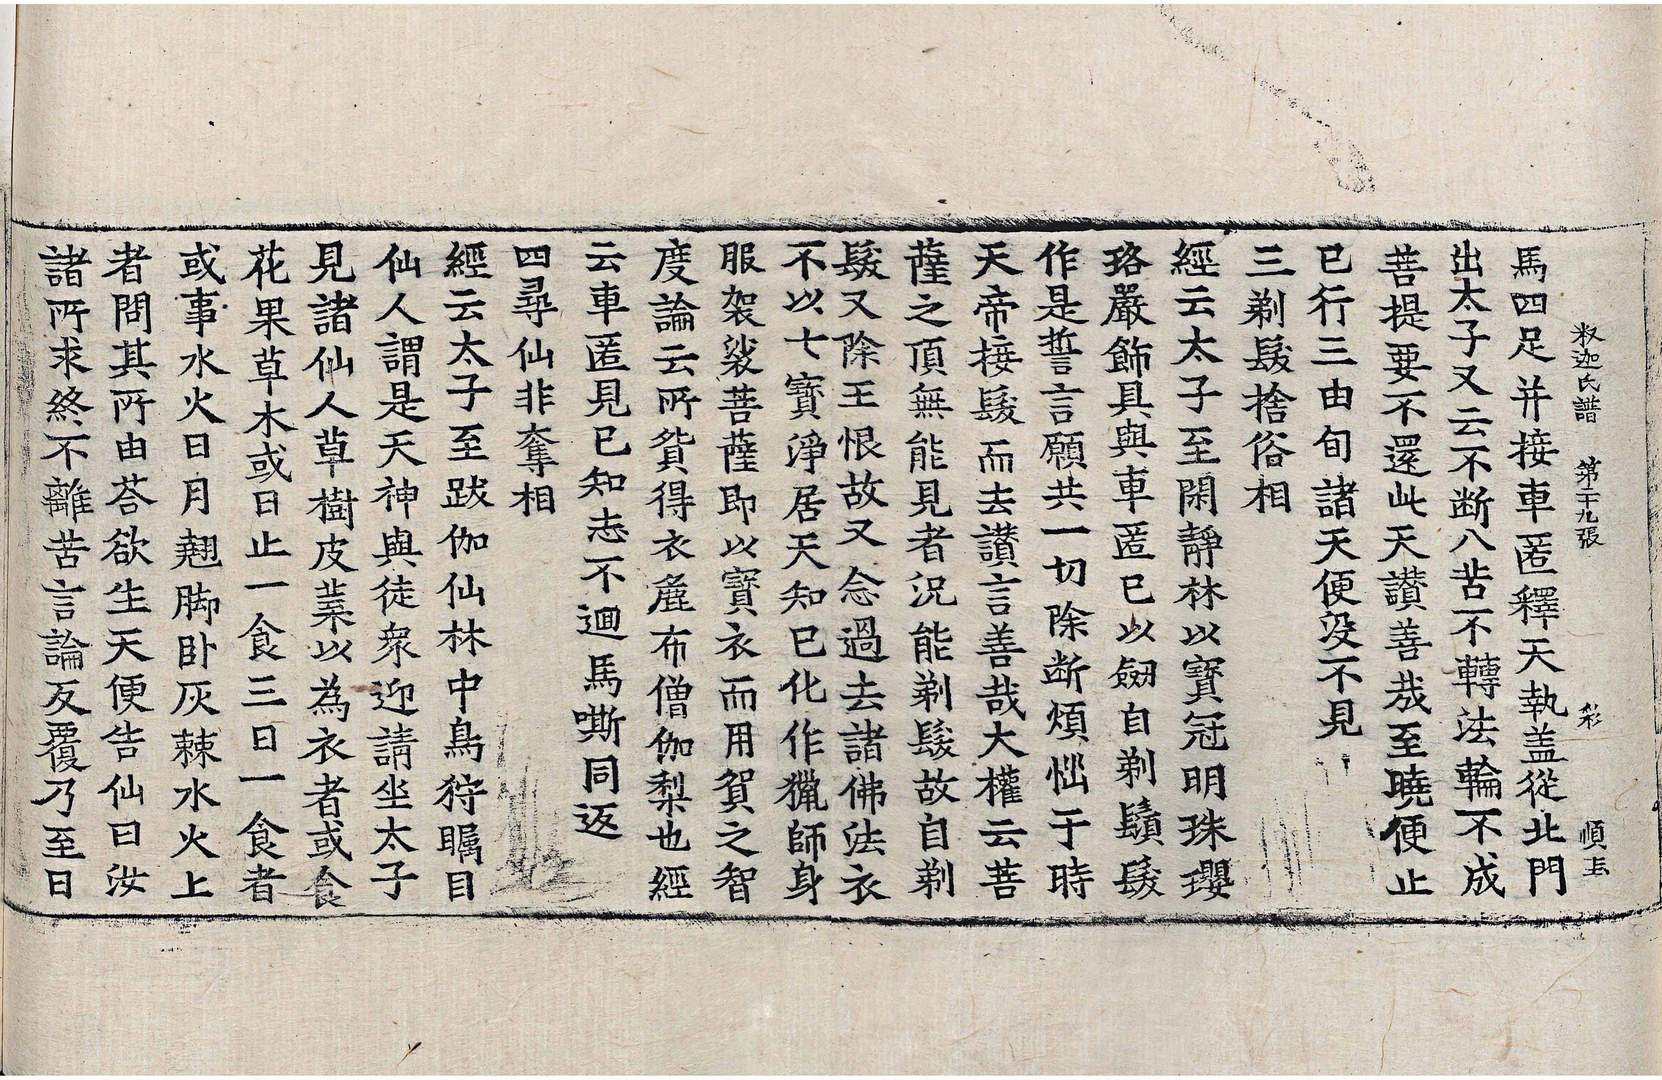 釈迦氏譜　第二十九張　彩　順玉
馬四足并接車匿釋天執盖從北門
出太子又云不断八苦不轉法輪不成
菩提要不還此天讃善哉至曉便止
已行三由旬諸天便没不見
三剃髮捨俗相
經云太子至閑靜林以寶冠明珠瓔
珞嚴飾具與車匿已以劒自剃鬚髮
作是誓言願共一切除断煩惱于時
天帝接髮而去讃言善哉大權云菩
薩之頂無能見者況能剃髮故自剃
髮又除王恨故又念過去諸佛法衣
不以七寶淨居天知已化作獵師身
服袈裟菩薩即以寶衣而用貿之智
度論云所貿得衣麁布僧伽梨也經
云車匿見已知志不迴馬嘶同返
四尋仙非奪相
經云太子至跋伽仙林中鳥狩矚目
仙人謂是天神與徒衆迎請坐太子
見諸仙人草樹皮葉以為衣者或食
花果草木或日止一食三日一食者
或事水火日月翹脚卧灰棘水火上
者問其所由荅欲生天便告仙曰汝
諸所求終不離苦言論反覆乃至日